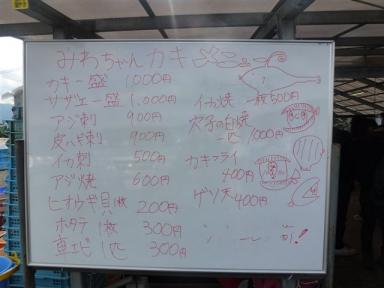 みわちゃんカキ
カキ一盛 1,000円
サザエ一盛 1,000円
アジ刺 900円
皮ハギ刺 900円
イカ刺 500円
アジ焼 600円
ヒオウギ貝1枚 200円
ホタテ1枚 300円
車エビ1匹 300円
イカ焼 一枚500円
穴子の白焼
一匹 1000円
カキフライ
400円
ゲソ天 400円